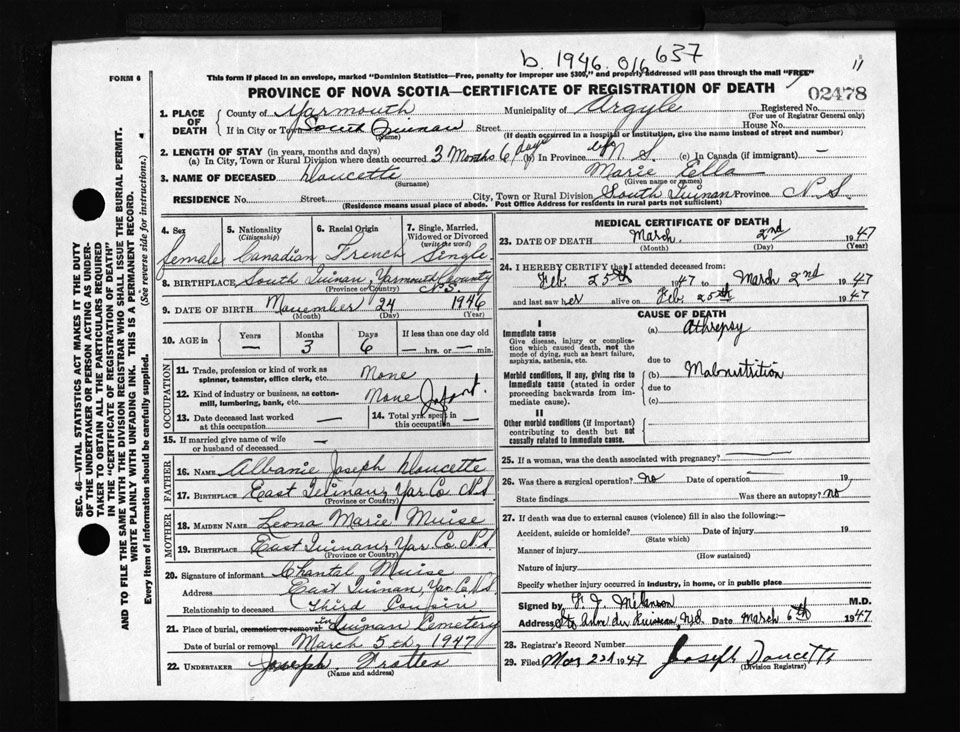 b. 1946. 016 637
11
FORM 6
This form if placed in an envelope, marked "Dominion Statistics—Free, penalty for improper use $300," and properly addressed will pass through the mail "FREE"
PROVINCE OF NOVA SCOTIA—CERTIFICATE OF REGISTRATION OF DEATH
02478
1. PLACE OF DEATH County of Yarmouth Municipality of Argyle Registered No.
(For use of Registrar General only)
If in City or Town South Quinan Street House No.
(Name) (If death occurred in a hospital or institution, give the name instead of street and number)
2. LENGTH OF STAY (in years, months and days)
(a) In City, Town or Rural Division where death occurred 3 Months 6 days (b) in Province life N.S. (c) In Canada (if immigrant) —
3. NAME OF DECEASED Doucette Marie Ella
(Surname) (Given name or names)
RESIDENCE No. Street City, Town or Rural Division South Quinan Province N.S.
(Residence means usual place of abode. Post Office Address for residents in rural parts not sufficient)
4. Sex 5. Nationality 6. Racial Origin 7. Single, Married, Widowed or Divorced
(Citizenship) (write the word)
female Canadian French Single
8. BIRTHPLACE South Quinan, Yarmouth County N.S.
(Province or Country)
9. DATE OF BIRTH November 24 1946
(Month) (Day) (Year)
10. AGE in Years Months Days If less than one day old
— 3 6 — hrs. or — min.
OCCUPATION
11. Trade, profession or kind of work as spinner, teamster, office clerk, etc. None
12. Kind of industry or business, as cotton-mill, lumbering, bank, etc. None Infant.
13. Date deceased last worked at this occupation —
14. Total yrs. spent in this occupation —
15. If married give name of wife or husband of deceased —
FATHER
16. NAME Albanie Joseph Doucette
17. BIRTHPLACE East Quinan, Yar. Co. N.S.
(Province or Country)
MOTHER
18. MAIDEN NAME Leona Marie Muise
19. BIRTHPLACE East Quinan, Yar. Co. N.S.
(Province or Country)
20. Signature of informant Chantal Muise
Address East Quinan, Yar. Co. N.S.
Relationship to deceased Third Cousin
21. Place of burial, cremation or removal Quinan Cemetery
Date of burial or removal March 5th, 1947
22. UNDERTAKER Joseph
(Name and address)
MEDICAL CERTIFICATE OF DEATH
23. DATE OF DEATH March 2nd 1947
(Month) (Day) (Year)
24. I HEREBY CERTIFY that I attended deceased from:
Feb. 25th 1947 to March 2nd 1947
and last saw her alive on Feb. 25th 1947
CAUSE OF DEATH
I
Immediate cause
Give disease, injury or complication which caused death, not the mode of dying, such as heart failure, asphyxia, asthenia, etc.
(a) Athrepsy
due to
Morbid conditions, if any, giving rise to immediate cause (stated in order proceeding backwards from immediate cause).
(b) Malnutrition
due to
(c)
II
Other morbid conditions (if important) contributing to death but not causally related to immediate cause.
25. If a woman, was the death associated with pregnancy? —
26. Was there a surgical operation? no Date of operation 19
State findings Was there an autopsy? no
27. If death was due to external causes (violence) fill in also the following:—
Accident, suicide or homicide? Date of injury 19
(State which)
Manner of injury
(How sustained)
Nature of injury
Specify whether injury occurred in industry, in home, or in public place
Signed by M.D.
Address N.S. Date March 6th 1947
28. Registrar's Record Number
29. Filed Mar 22d 1947 Joseph Doucette
(Division Registrar)
SEC. 46—VITAL STATISTICS ACT MAKES IT THE DUTY
OF THE UNDERTAKER OR PERSON ACTING AS UNDER-
TAKER TO OBTAIN ALL THE PARTICULARS REQUIRED
IN THE "CERTIFICATE OF REGISTRATION OF DEATH"
AND TO FILE THE SAME WITH THE DIVISION REGISTRAR WHO SHALL ISSUE THE BURIAL PERMIT.
WRITE PLAINLY WITH UNFADING INK. THIS IS A PERMANENT RECORD.
Every item of information should be carefully supplied. (See reverse side for instructions.)